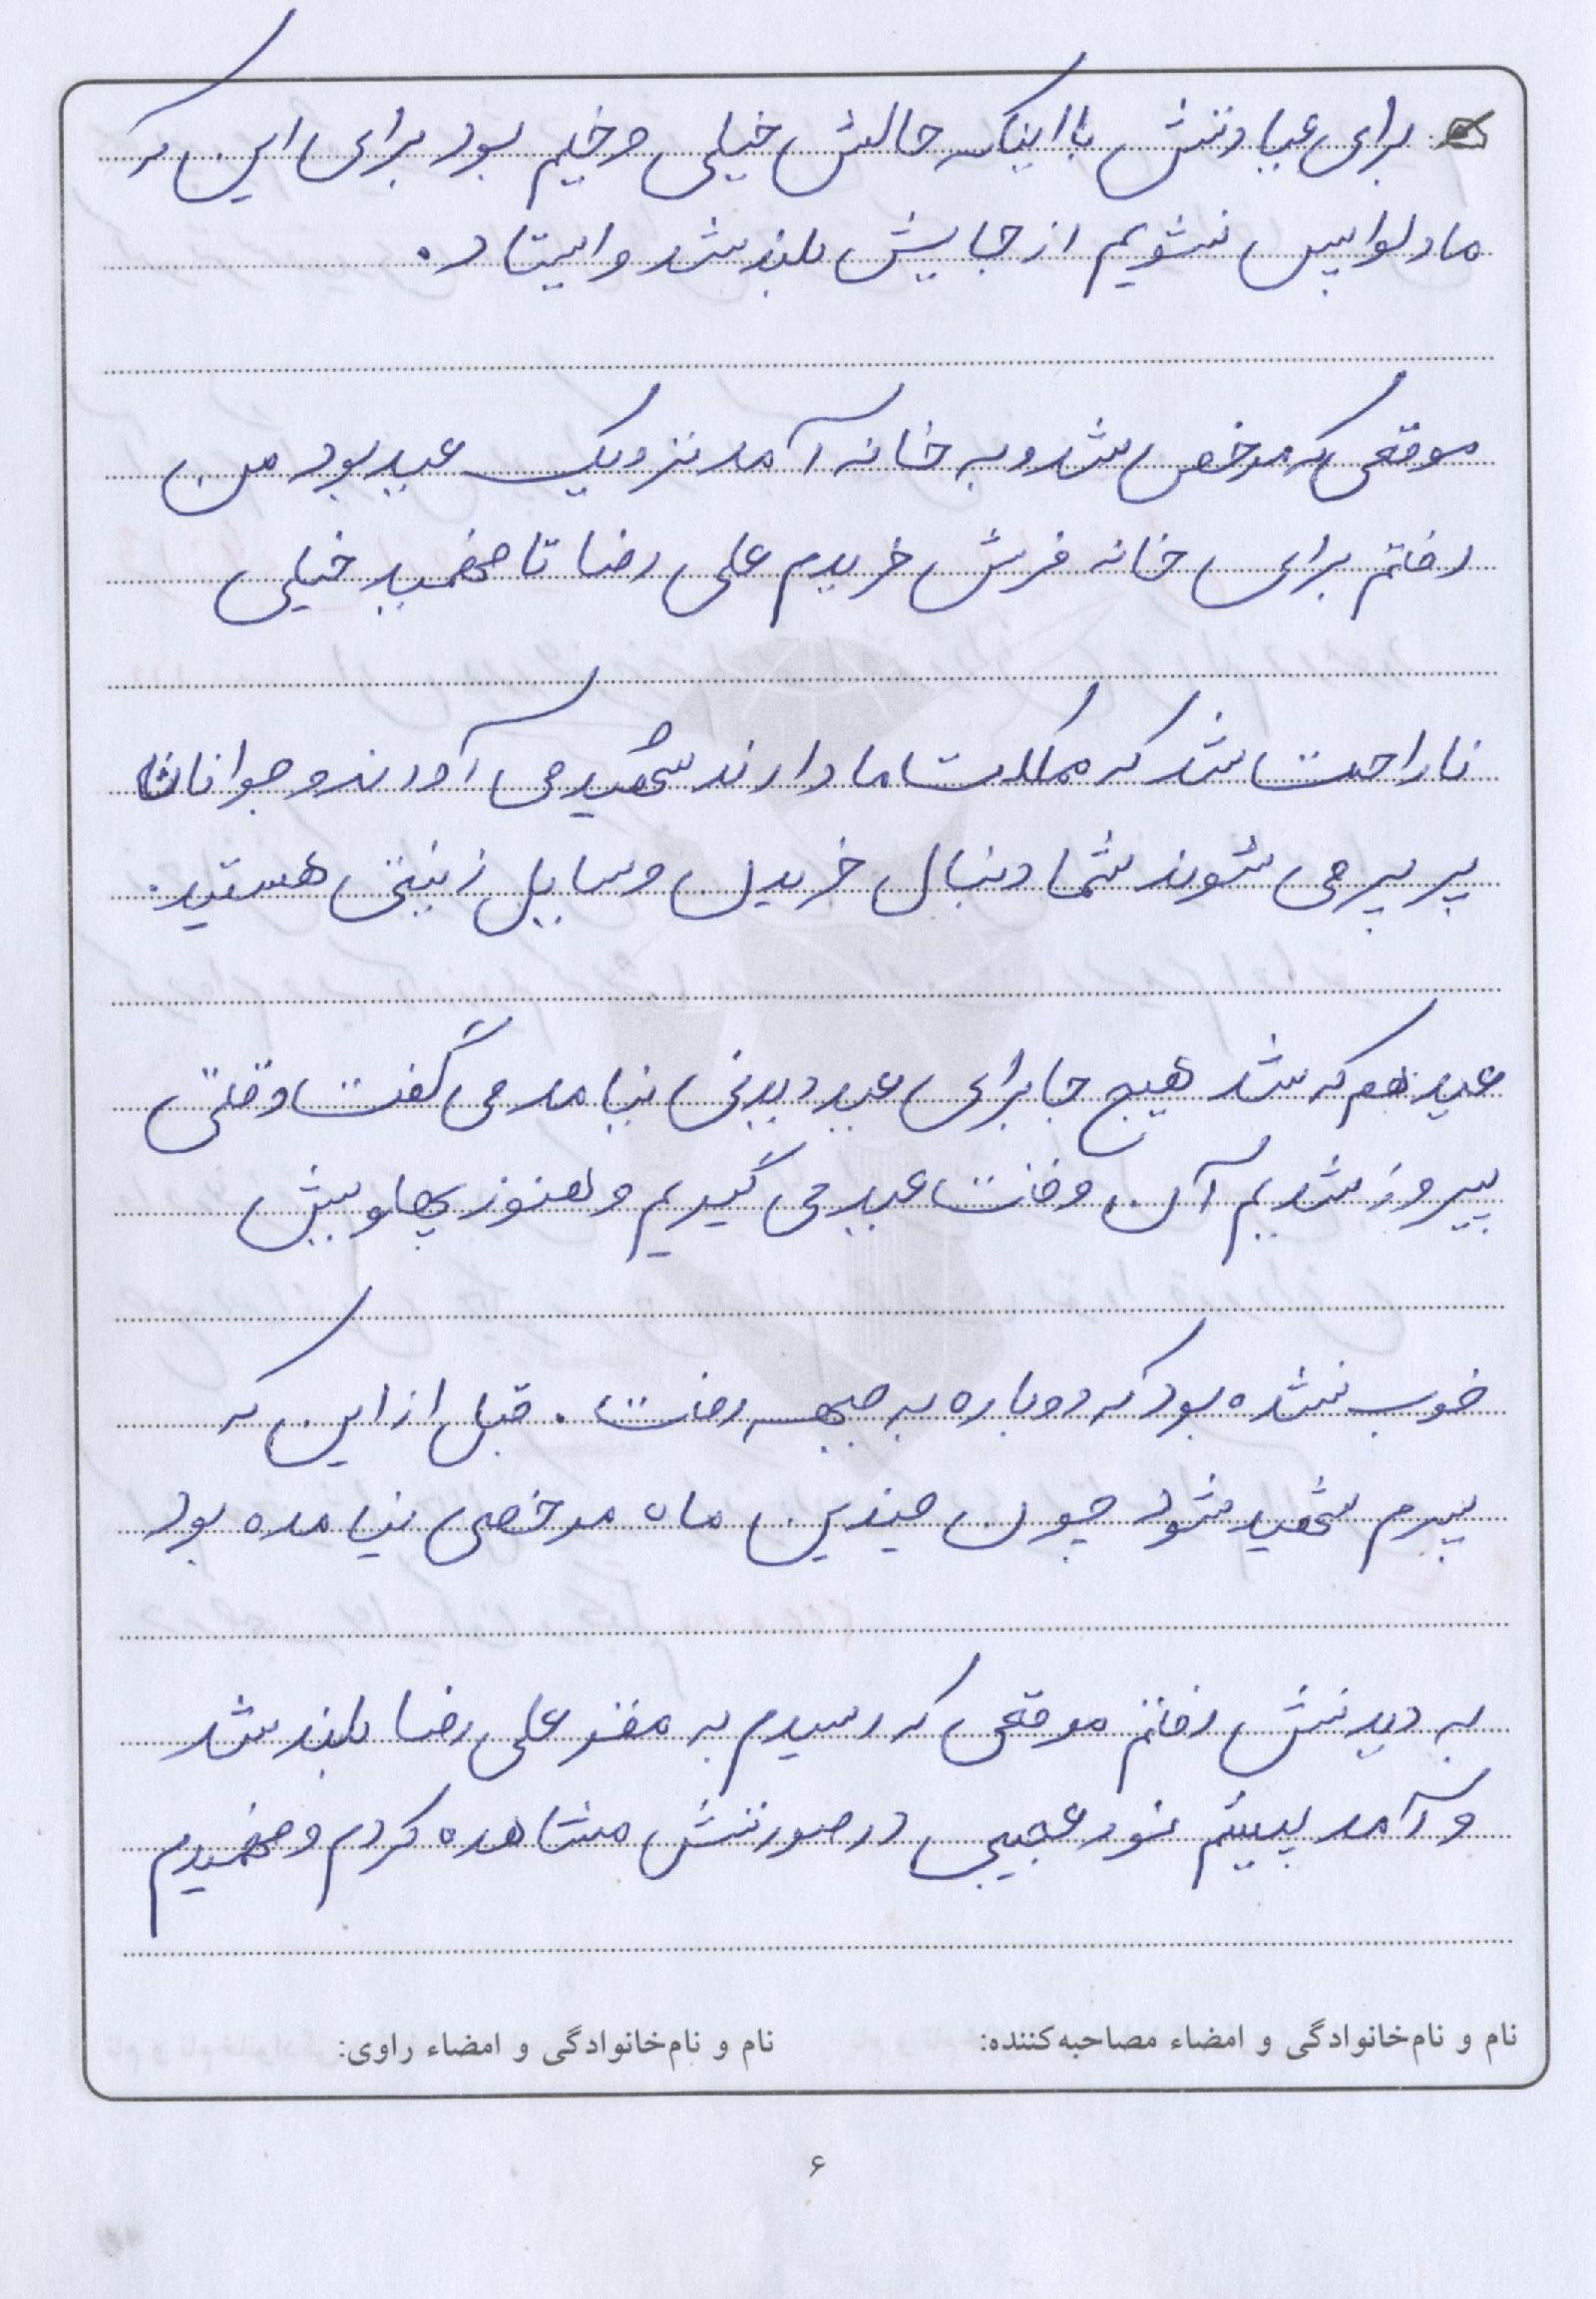 برای عیادتش با اینکه حالش خیلی وخیم بود برای این که
ما دلواپس نشویم از جایش بلند شد و ایستاد.
موقعی که مرخص شد و به خانه آمد نزدیک عید بود من
رفتم برای خانه فرش خریدم علی رضا تا فهمید خیلی
ناراحت شد که مملکت ما دارند شهید می آورند و جوانان ما
پر پر می شوند شما دنبال خریدن وسایل زینتی هستید.
عید هم که شد هیچ جا برای عید دیدنی نیامد می گفت وقتی
پیروز شدیم آن وقت عید می گیریم و هنوز پاهایش
خوب نشده بود که دوباره به جبهه رفت. قبل از این که
پسرم شهید شود چون چندین ماه مرخصی نیامده بود
به دیدنش رفتم موقعی که رسیدم به مقر علی رضا بلند شد
و آمد پیشم نور عجیبی در صورتش مشاهده کردم و فهمیدم
نام و نام‌خانوادگی و امضاء مصاحبه‌کننده:
نام و نام‌خانوادگی و امضاء راوی:
۶